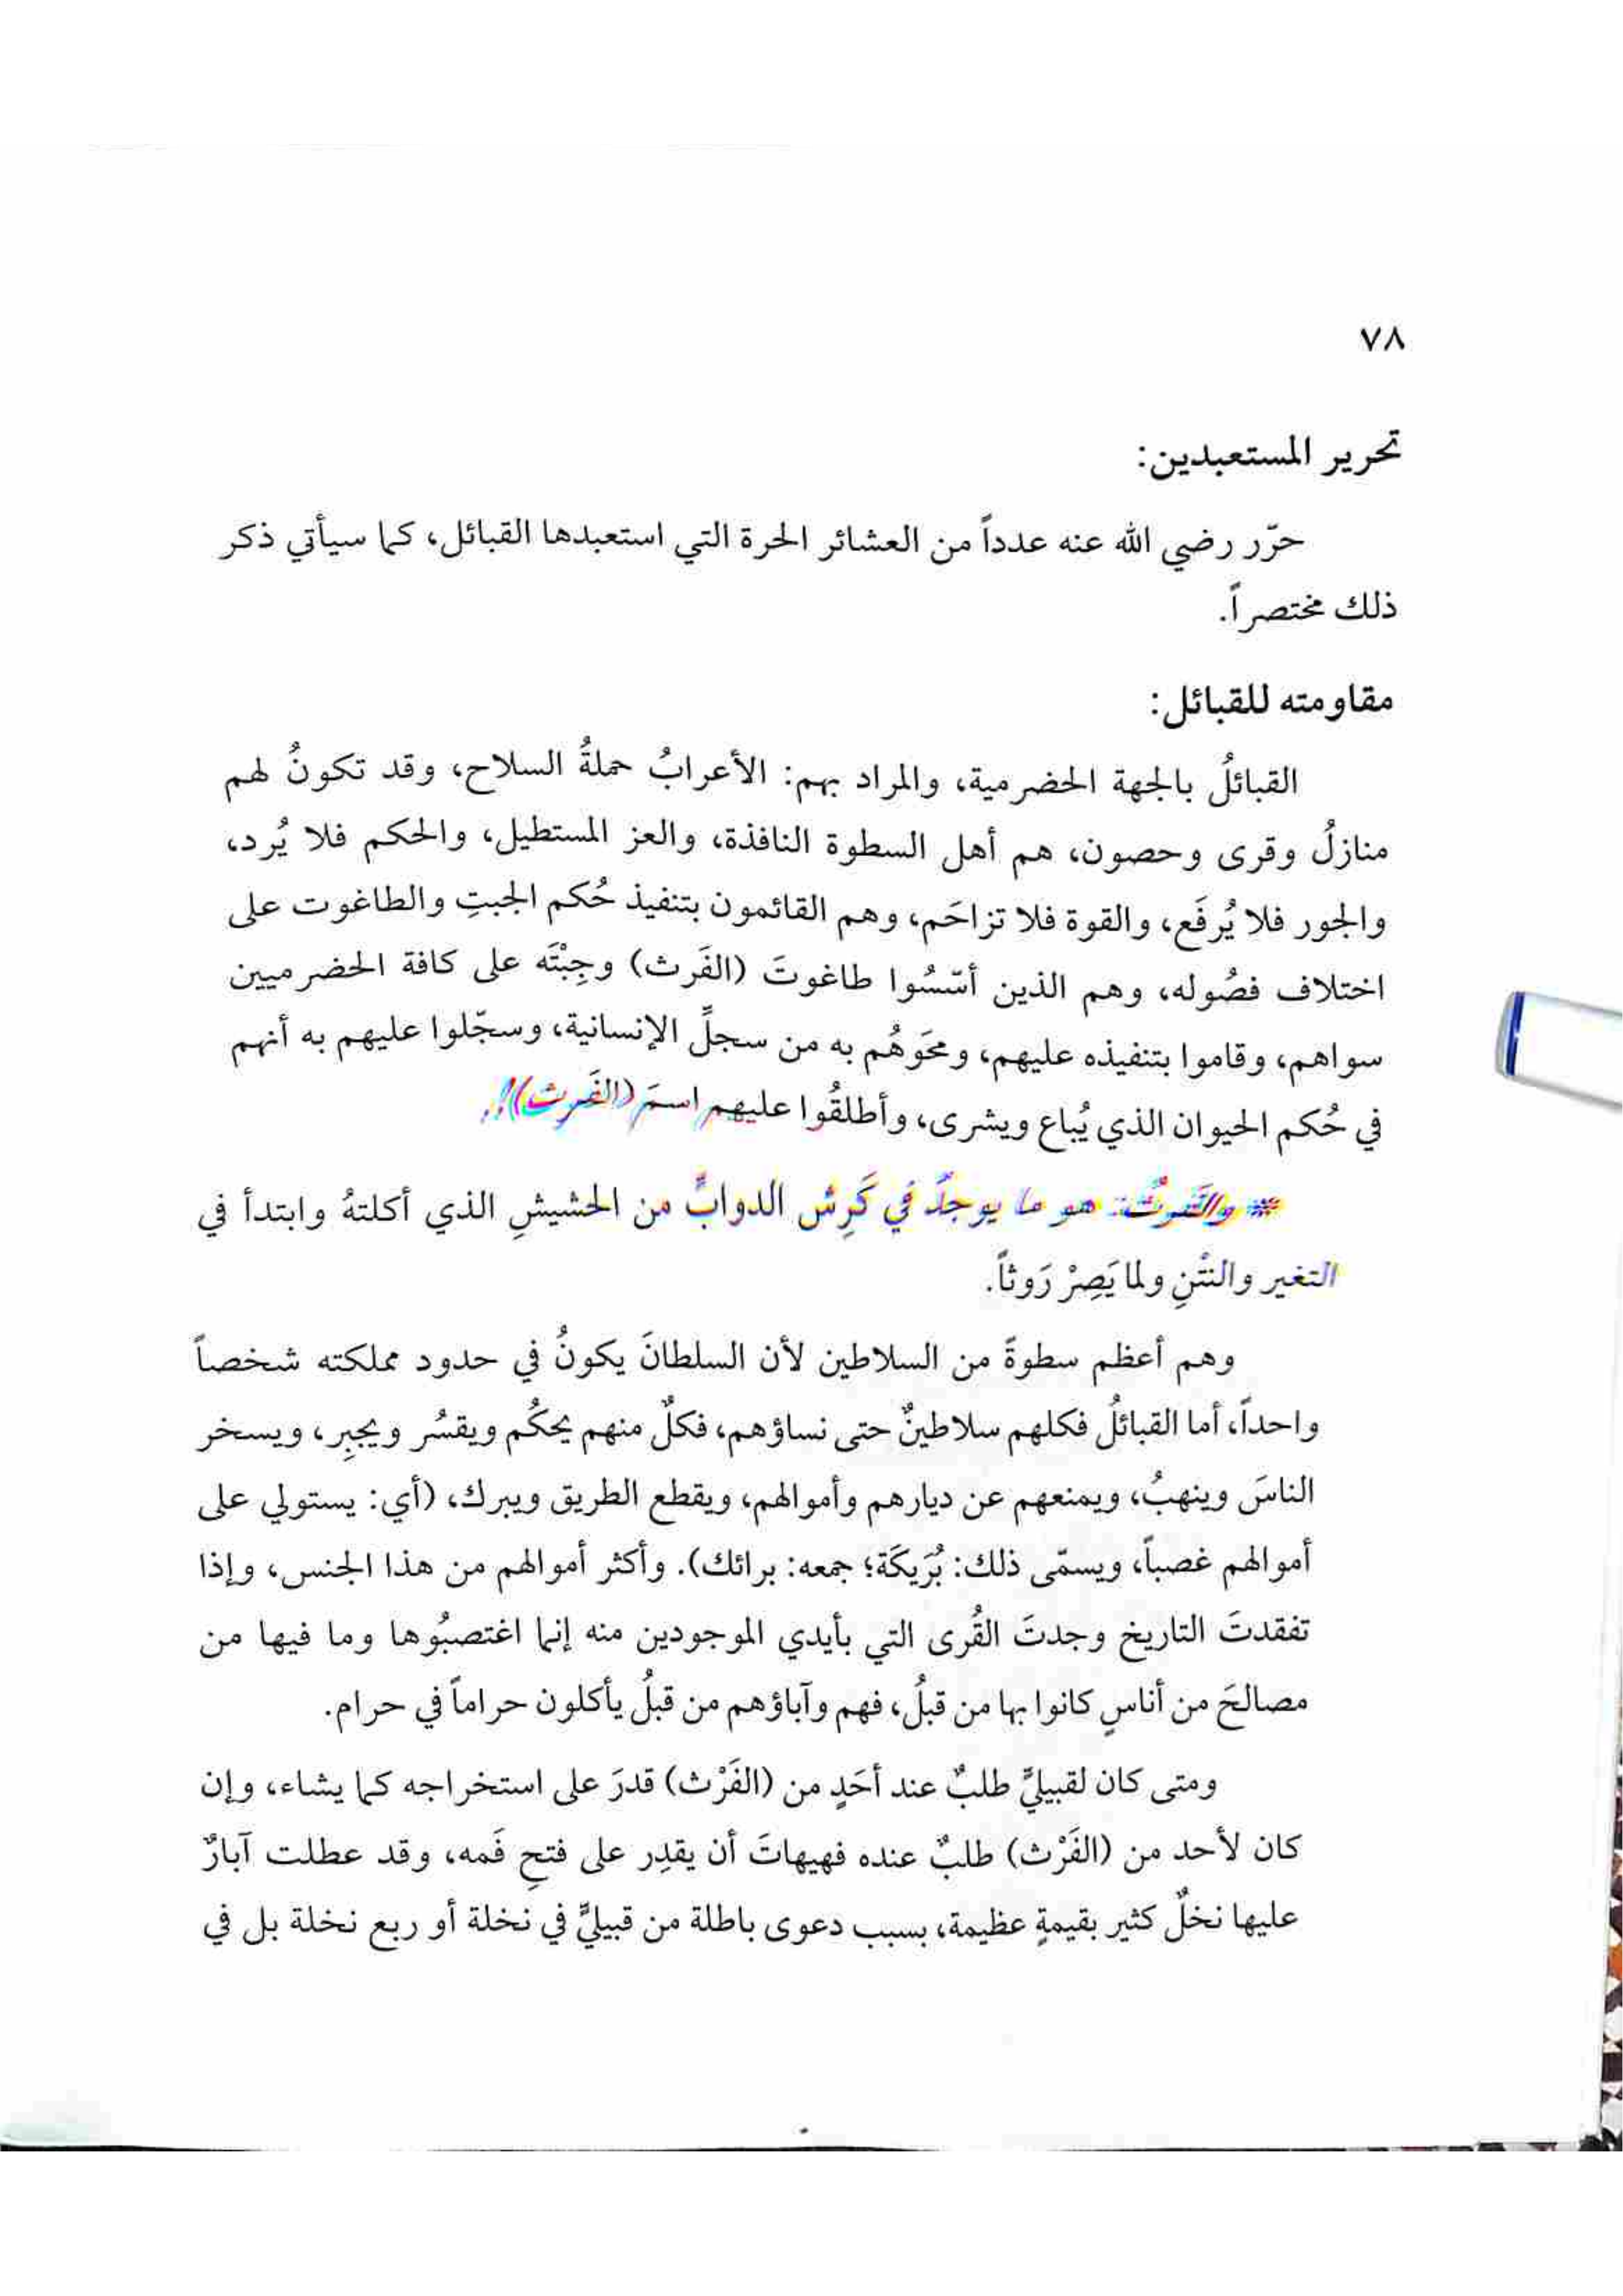 ٧٨
تحرير المستعبدين:
حرّر رضي الله عنه عدداً من العشائر الحرة التي استعبدها القبائل، كما سيأتي ذكر
ذلك مختصراً.
مقاومته للقبائل:
القبائلُ بالجهة الحضرمية، والمراد بهم: الأعرابُ حملةُ السلاح، وقد تكونُ لهم
منازلُ وقرى وحصون، هم أهل السطوة النافذة، والعز المستطيل، والحكم فلا يُرد،
والجور فلا يُرفَع، والقوة فلا تزاحَم، وهم القائمون بتنفيذ حُكم الجبتِ والطاغوت على
اختلاف فصُوله، وهم الذين أسّسُوا طاغوتَ (الفَرث) وجِبْتَه على كافة الحضرميين
سواهم، وقاموا بتنفيذه عليهم، ومحَوهُم به من سجلِّ الإنسانية، وسجّلوا عليهم به أنهم
في حُكم الحيوان الذي يُباع ويشرى، وأطلقُوا عليهم اسمَ (الفَرث)!.
* والفَرثُ: هو ما يوجدُ في كَرِش الدوابِّ من الحشيشِ الذي أكلتهُ وابتدأ في
التغير والنتْنِ ولما يَصِرْ رَوثاً.
وهم أعظم سطوةً من السلاطين لأن السلطانَ يكونُ في حدود مملكته شخصاً
واحداً، أما القبائلُ فكلهم سلاطينٌ حتى نساؤهم، فكلٌ منهم يحكُم ويقسُر ويجبِر، ويسخر
الناسَ وينهبُ، ويمنعهم عن ديارهم وأموالهم، ويقطع الطريق ويبرك، (أي: يستولي على
أموالهم غصباً، ويسمّى ذلك: بُرَيكَة؛ جمعه: برائك). وأكثر أموالهم من هذا الجنس، وإذا
تفقدتَ التاريخ وجدتَ القُرى التي بأيدي الموجودين منه إنما اغتصبُوها وما فيها من
مصالحَ من أناسٍ كانوا بها من قبلُ، فهم وآباؤهم من قبلُ يأكلون حراماً في حرام.
ومتى كان لقبيليٍّ طلبٌ عند أحَدٍ من (الفَرْث) قدرَ على استخراجه كما يشاء، وإن
كان لأحد من (الفَرْث) طلبٌ عنده فهيهاتَ أن يقدِر على فتحِ فَمه، وقد عطلت آبارٌ
عليها نخلٌ كثير بقيمةٍ عظيمة، بسبب دعوى باطلة من قبيليٍّ في نخلة أو ربع نخلة بل في